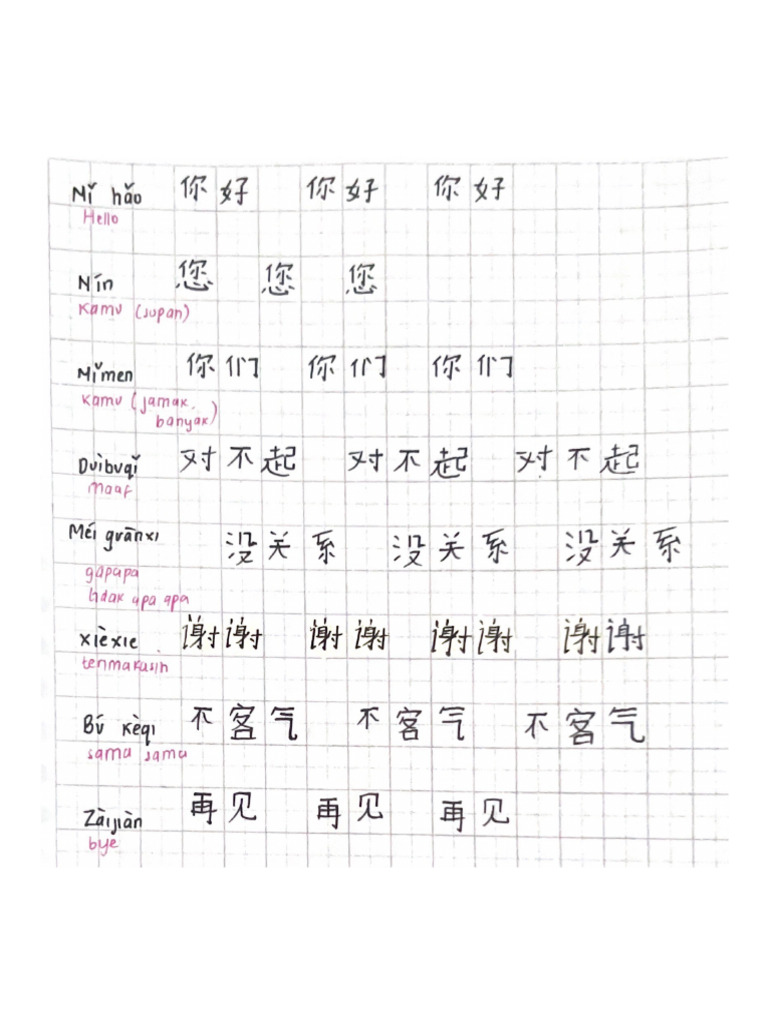 Nǐ hǎo 你好 你好 你好
Hello
Nín 您 您 您
Kamu (sopan)
Nǐmen 你们 你们 你们
Kamu (jamak,
banyak)
Duìbuqǐ 对不起 对不起 对不起
maaf
Méi guānxi 没关系 没关系 没关系
gapapa
tidak apa apa
xièxie 谢谢 谢谢 谢谢 谢谢
terimakasih
Bú kèqi 不客气 不客气 不客气
sama sama
Zàijiàn 再见 再见 再见
bye